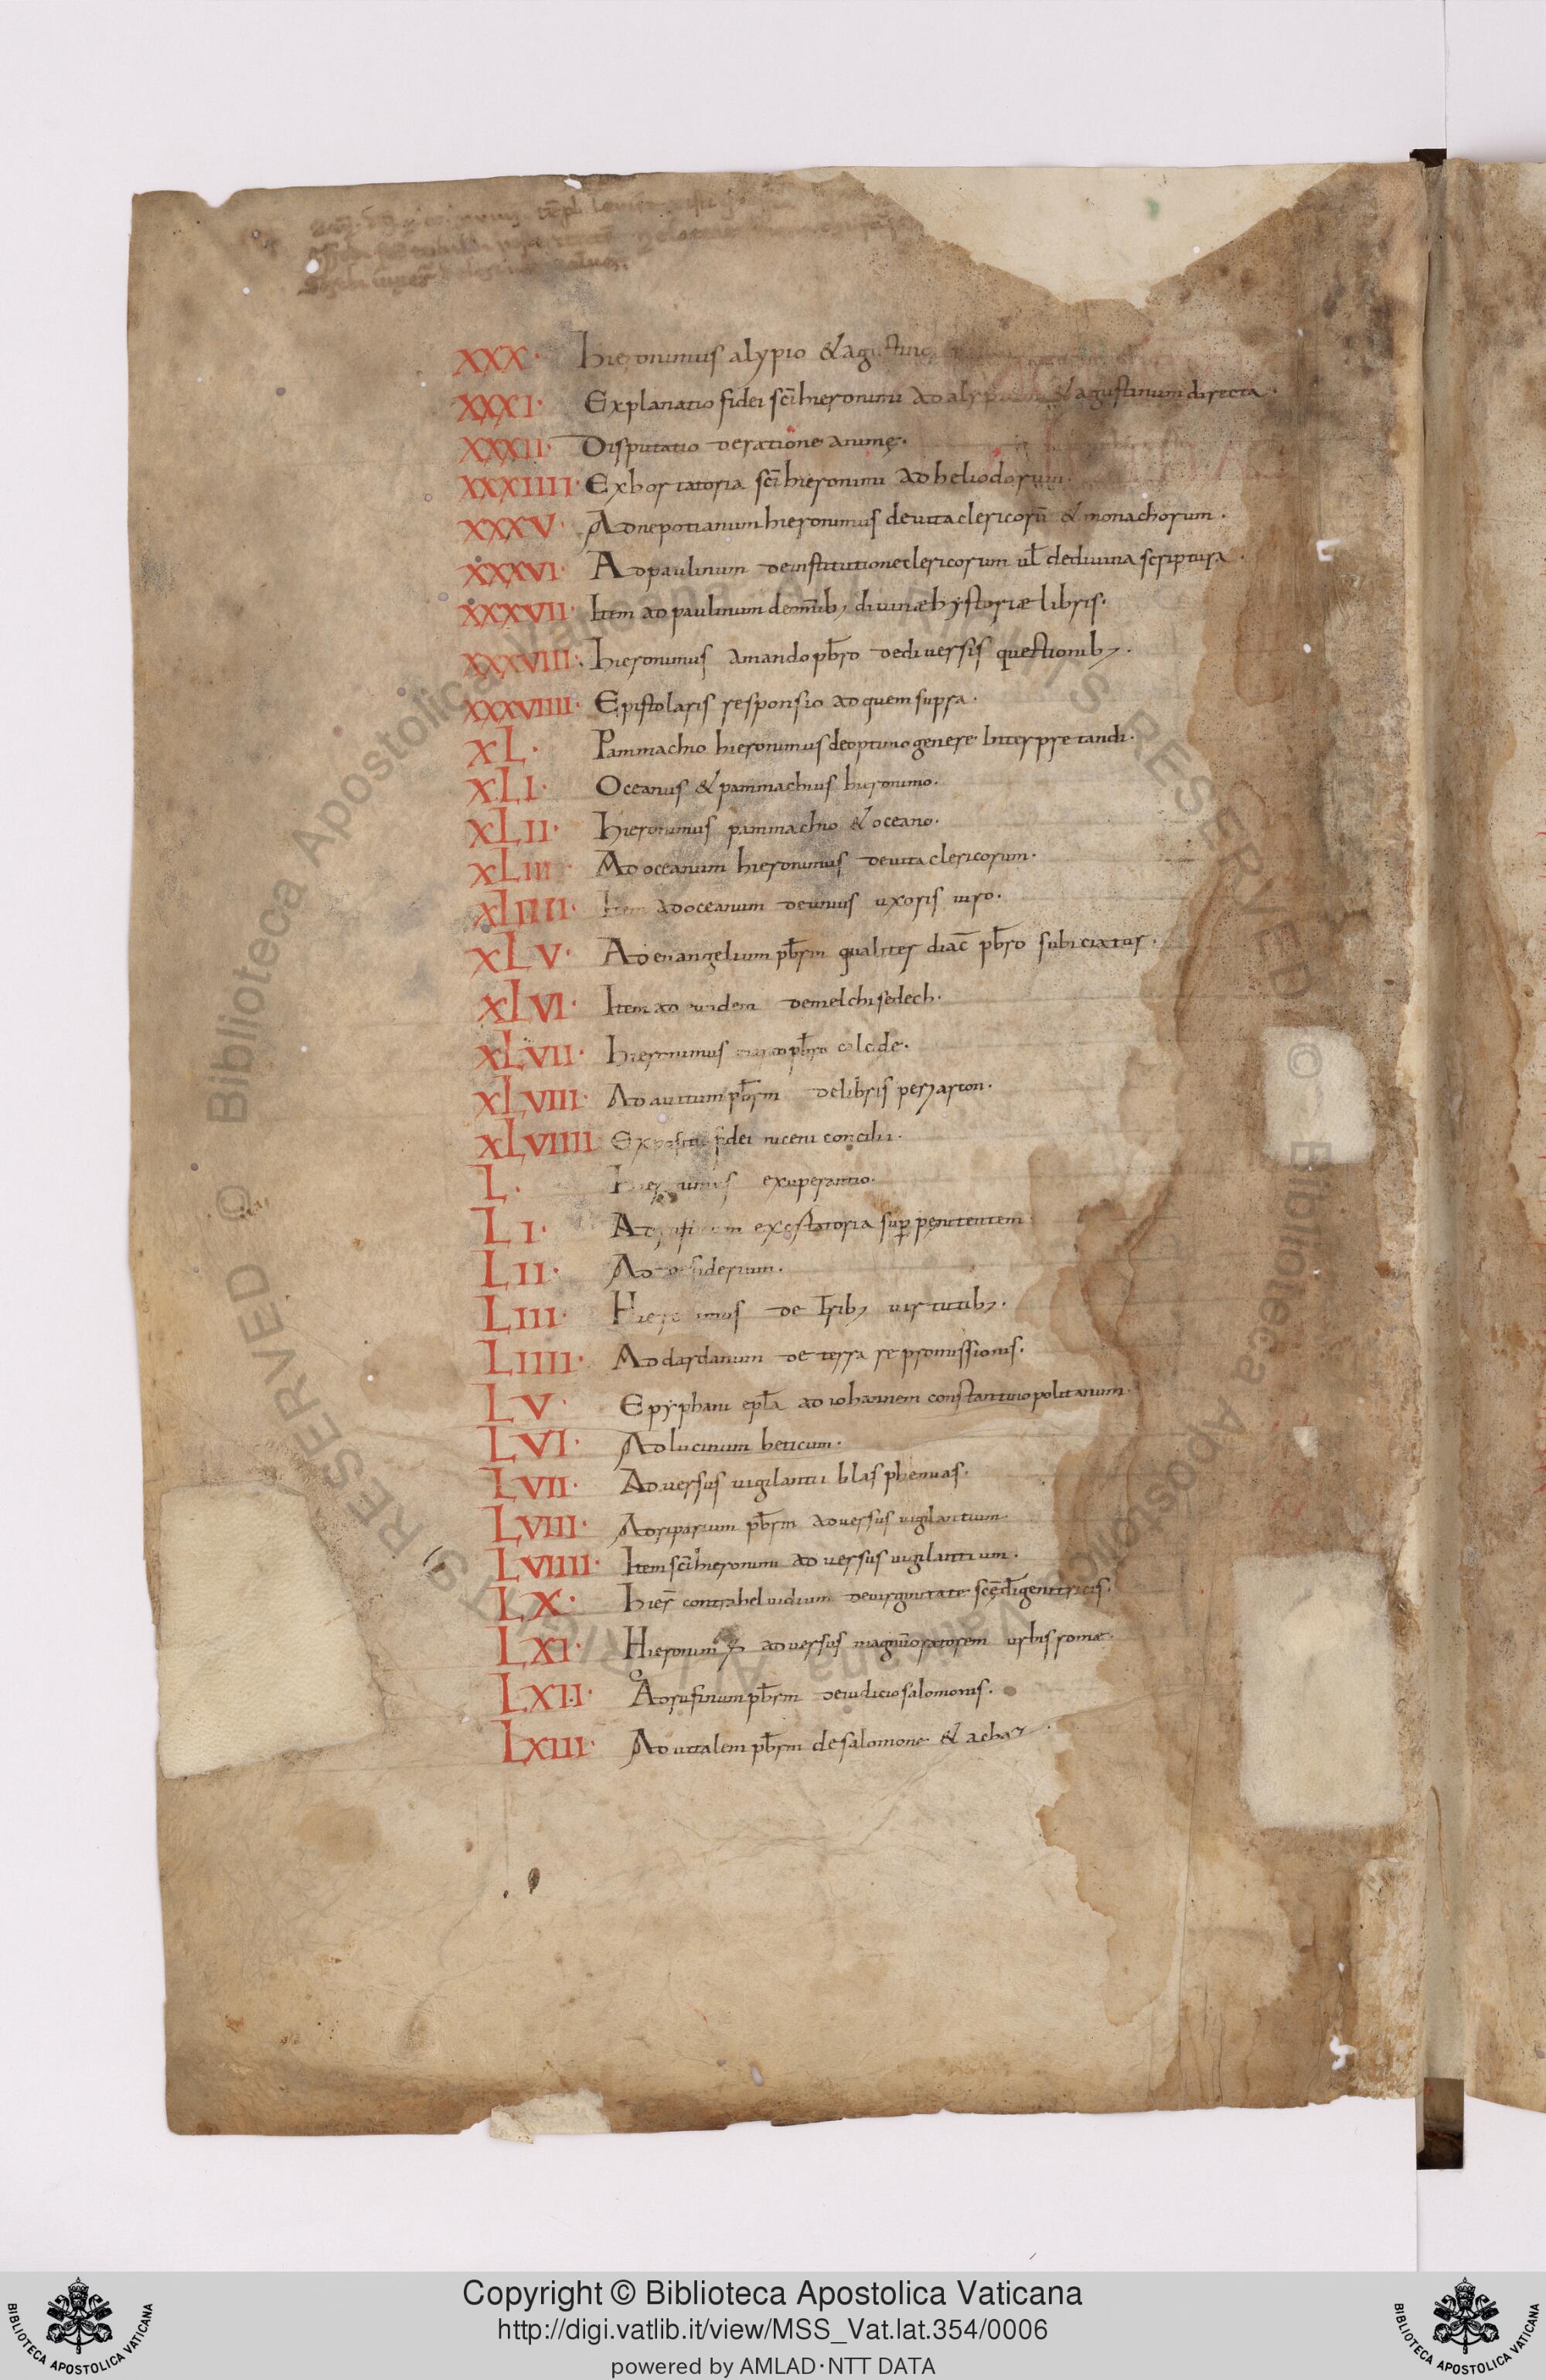 XXX· Hieronimus alypio & agustino
XXXI· Explanatio fidei sc̄i hieronimi ad alypium & agustinum directa·
XXXII· Disputatio de ratione animę·
XXXIIII· Exhortatoria sc̄i hieronimi ad heliodorum·
XXXV· Ad nepotianum hieronimus de uita clericorū & monachorum·
XXXVI· Ad paulinum de institutione clericorum ul̄ de diuina scriptura·
XXXVII· Item ad paulinum de omīb; diuinæ hystoriæ libris·
XXXVIII· Hieronimus amando pb̄ro de diuersis questionib;·
XXXVIIII· Epistolaris responsio ad quem supra·
XL· Pammachio hieronimus de optimo genere interpretandi·
XLI· Oceanus & pammachius hieronimo·
XLII· Hieronimus pammachio & oceano·
XLIII· Ad oceanum hieronimus de uita clericorum·
XLIIII· Item ad oceanum de unius uxoris uiro·
XLV· Ad euangelium pb̄rm qualiter diac̄ pb̄ro subiciatur·
XLVI· Item ad eundem de melchisedech·
XLVII· Hieronimus pb̄ro calcide·
XLVIII· Ad auitum pb̄rm de libris periarcon·
XLVIIII Expositio fidei niceni concilii·
L· Hieronimus exuperantio·
LI· Ad rusticum exortatoria sup̄ penitentem
LII· Ad desiderium·
LIII· Hieronimus de trib; uirtutib;·
LIIII· Ad dardanum de terra repromissionis·
LV· Epyphani epl̄a ad iohannem constantinopolitanum·
LVI· Ad lucinum beticum·
LVII· Aduersus uigilantii blasphemias·
LVIII· Ad riparium pb̄rm aduersus uigilantium·
LVIIII· Item sc̄i hieronimi aduersus uigilantium·
LX· Hier̄ contra heluidium de uirginitate sc̄ę dī genitricis·
LXI· Hieronim; aduersus magnū oratorem urbis romæ·
LXII· Ad rufinum pb̄rm de iudicio salomonis·
LXIII· Ad uitalem pb̄rm de salomone & achaz·
Copyright © Biblioteca Apostolica Vaticana
http://digi.vatlib.it/view/MSS_Vat.lat.354/0006
powered by AMLAD·NTT DATA
BIBLIOTECA APOSTOLICA VATICANA
BIBLIOTECA APOSTOLICA VATICANA